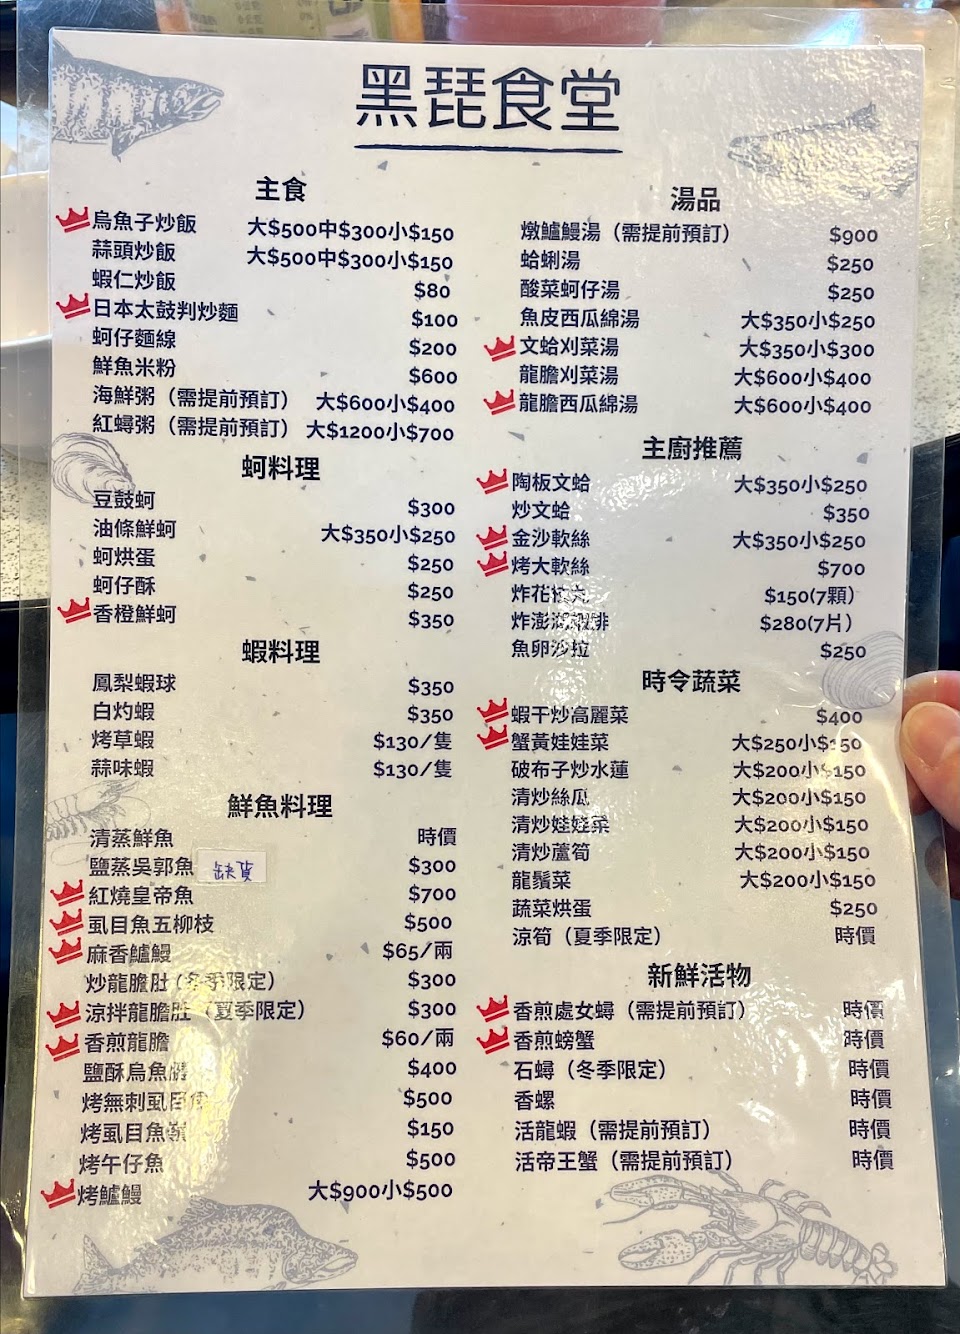 黑琵食堂
主食
烏魚子炒飯 大$500中$300小$150
蒜頭炒飯 大$500中$300小$150
蝦仁炒飯 $80
日本太鼓判炒麵 $100
蚵仔麵線 $200
鮮魚米粉 $600
海鮮粥（需提前預訂） 大$600小$400
紅蟳粥（需提前預訂） 大$1200小$700
蚵料理
豆鼓蚵 $300
油條鮮蚵 大$350小$250
蚵烘蛋 $250
蚵仔酥 $250
香橙鮮蚵 $350
蝦料理
鳳梨蝦球 $350
白灼蝦 $350
烤草蝦 $130/隻
蒜味蝦 $130/隻
鮮魚料理
清蒸鮮魚 時價
鹽蒸吳郭魚 缺貨 $300
紅燒皇帝魚 $700
虱目魚五柳枝 $500
麻香鱸鰻 $65/兩
炒龍膽肚（冬季限定） $300
涼拌龍膽肚（夏季限定） $300
香煎龍膽 $60/兩
鹽酥烏魚 $400
烤無刺虱目魚 $500
烤虱目魚嶺 $150
烤午仔魚 $500
烤鱸鰻 大$900小$500
湯品
燉鱸鰻湯（需提前預訂） $900
蛤蜊湯 $250
酸菜蚵仔湯 $250
魚皮西瓜綿湯 大$350小$250
文蛤刈菜湯 大$350小$300
龍膽刈菜湯 大$600小$400
龍膽西瓜綿湯 大$600小$400
主廚推薦
陶板文蛤 大$350小$250
炒文蛤 $350
金沙軟絲 大$350小$250
烤大軟絲 $700
炸花枝丸 $150(7顆）
炸澎湖蝦排 $280(7片）
魚卵沙拉 $250
時令蔬菜
蝦干炒高麗菜 $400
蟹黃娃娃菜 大$250小$150
破布子炒水蓮 大$200小$150
清炒絲瓜 大$200小$150
清炒娃娃菜 大$200小$150
清炒蘆筍 大$200小$150
龍鬚菜 大$200小$150
蔬菜烘蛋 $250
涼筍（夏季限定） 時價
新鮮活物
香煎處女蟳（需提前預訂） 時價
香煎螃蟹 時價
石蟳（冬季限定） 時價
香螺 時價
活龍蝦（需提前預訂） 時價
活帝王蟹（需提前預訂） 時價